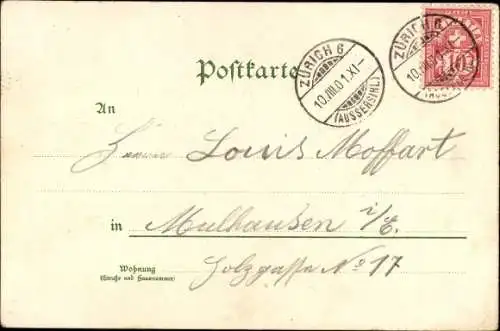 ZÜRICH 6
10.III.01.XI-
(AUSSERSIHL)
ZÜRICH 6
10
Postkarte
An
Herrn Louis Moffart
in Mulhausen i/E.
Wohnung Holzgasse No 17
(Straße und Hausnummer)